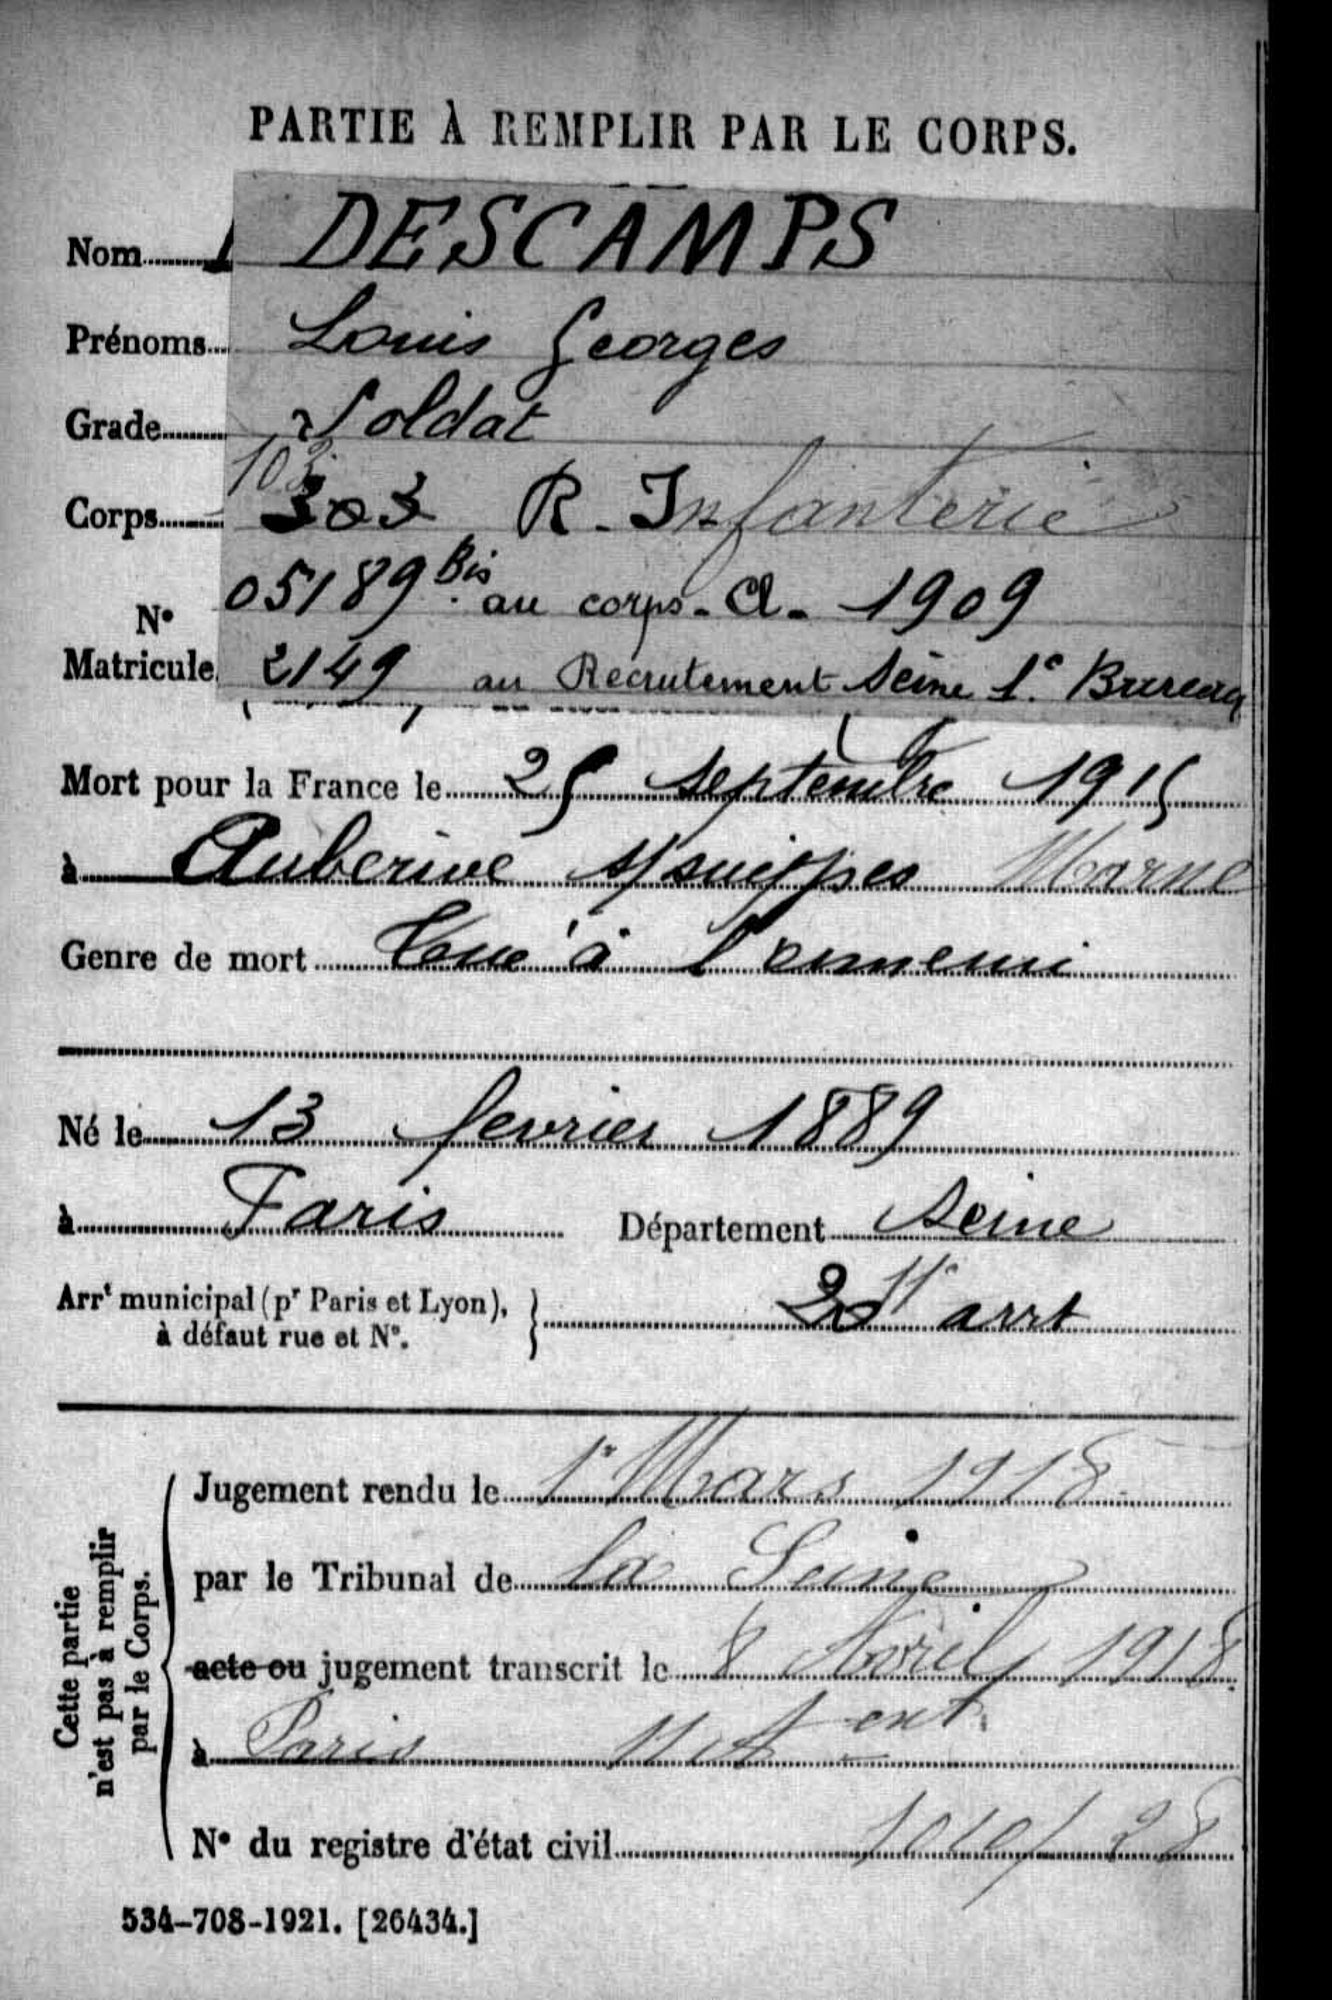 PARTIE À REMPLIR PAR LE CORPS.
Nom DESCAMPS
Prénoms Louis Georges
Grade Soldat
103
Corps 303 R. Infanterie
05189 Bis au corps - Cl. 1909
N° Matricule 2149 au Recrutement Seine 1e Bureau
Mort pour la France le 25 septembre 1915
à Auberive s/suippes Marne
Genre de mort Tué à l'ennemi
Né le 13 fevrier 1889
à Paris Département Seine
11e
Arrt municipal (pr Paris et Lyon), à défaut rue et N°. 20 arrt
Cette partie n'est pas à remplir par le Corps.
Jugement rendu le 1er Mars 1918
par le Tribunal de la Seine
acte ou jugement transcrit le 8 Avril 1918
à Paris 11e Art
N° du registre d'état civil
534-708-1921. [26434.]